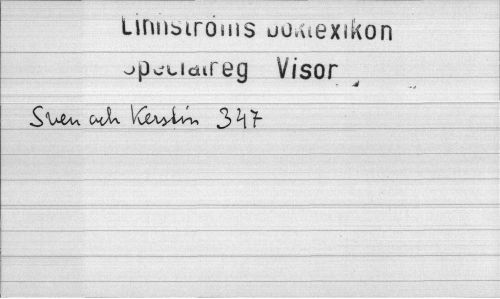 Linnströms boklexikon
Specialreg Visor
Sven och Kerstin 347